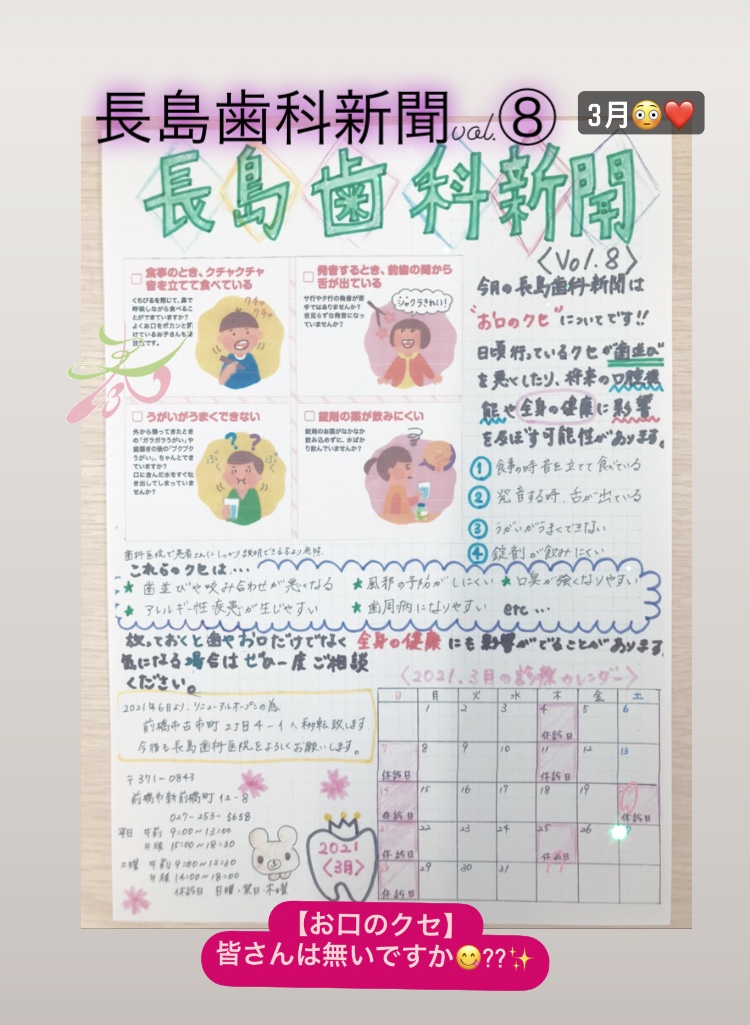 長島歯科新聞vol.⑧
3月😳❤️
長島歯科新聞
〈Vol.8〉
□ 食事のとき、クチャクチャ
音を立てて食べている
くちびるを閉じて、鼻で
呼吸しながら食べるこ
とができていますか?
クチャ
クチャ
□ 発音するとき、前歯の間から
舌が出ている
サ行やタ行の発音が苦
手ではありませんか?
舌足らずな発音になっ
ていませんか?
□ うがいがうまくできない
外から帰ってきたとき
の「ガラガラうがい」や
歯磨きの後の「ブクブク
うがい」、ちゃんとでき
ていますか?
口に含んだ水をすぐ吐
き出してしまっていま
せんか?
? ?
□ 錠剤の薬が飲みにくい
錠剤のお薬がなかなか
飲み込めずに、水ばか
り飲んでいませんか?
今月の長島歯科新聞は
"お口のクセ"についてです!!
日頃行っているクセが歯並び
を悪くしたり、将来の口腔機
能や全身の健康に影響
を及ぼす可能性があります。
① 食事の時音を立てて食べている
② 発音する時、舌が出ている
③ うがいがうまくできない
④ 錠剤が飲みにくい
歯科医院で患者さんにしっかり説明できるより参照.
これらのクセは…
★ 歯並びや咬み合わせが悪くなる ★風邪の予防がしにくい ★口臭が強くなりやすい
★ アレルギー性疾患が生じやすい ★歯周病になりやすい etc…
放っておくと歯やお口だけでなく 全身の健康 にも影響がでることがあります.
気になる場合はぜひ一度ご相談
ください。
〈2021.3月の診療カレンダー〉
2021年6月より、リニューアルオープンの為
前橋市古市町2丁目4-1へ移転致します.
今後も長島歯科医院をよろしくお願いします。
〒371-0843
前橋市新前橋町12-8
027-253-5658
平日 午前 9:00〜13:00
午後 15:00〜18:30
土曜 午前 9:00〜12:30
午後 14:00〜18:00
休診日 日曜・祝日・木曜
2021
〈3月〉
日 月 火 水 木 金 土
1 2 3 4 5 6
休診日
7 8 9 10 11 12 13
休診日 休診日
14 15 16 17 18 19
休診日 休診日
21 22 23 24 25 26
休診日 休診日
29 30 31
休診日
【お口のクセ】
皆さんは無いですか😋??✨